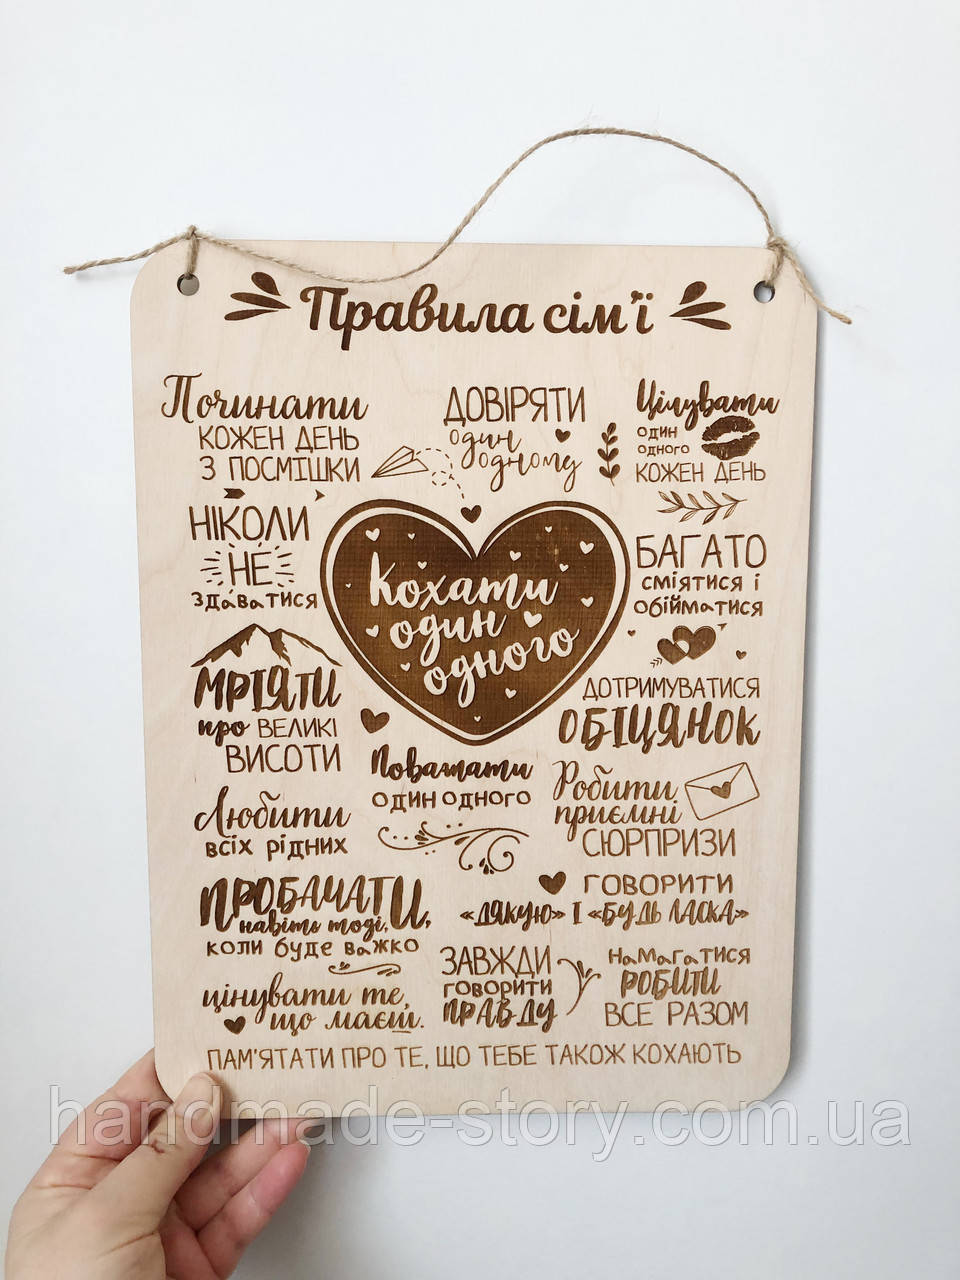 Правила сім'ї
Починати
КОЖЕН ДЕНЬ
З ПОСМІШКИ
ДОВІРЯТИ
один
одному
Цілувати
один
одного
КОЖЕН ДЕНЬ
НІКОЛИ
НЕ
здаватися
Кохати
один
одного
БАГАТО
сміятися і
обійматися
МРІЯТИ
про ВЕЛИКІ
ВИСОТИ
ДОТРИМУВАТИСЯ
ОБІЦЯНОК
Поважати
один одного
Робити
приємні
СЮРПРИЗИ
Любити
всіх рідних
ПРОБАЧАТИ,
навіть тоді,
коли буде важко
ГОВОРИТИ
«ДЯКУЮ» І «БУДЬ ЛАСКА»
цінувати те,
що маєш.
ЗАВЖДИ
говорити
ПРАВДУ
намагатися
РОБИТИ
ВСЕ РАЗОМ
ПАМ'ЯТАТИ ПРО ТЕ, ЩО ТЕБЕ ТАКОЖ КОХАЮТЬ
handmade-story.com.ua